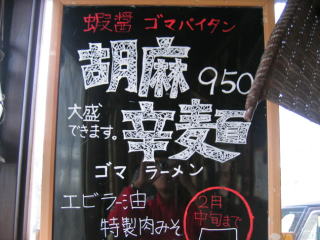 蝦醤 ゴマパイタン
胡麻 950
大盛
できます。
辛麺
ゴマ ラーメン
エビラー油
特製肉みそ
2月
中旬まで